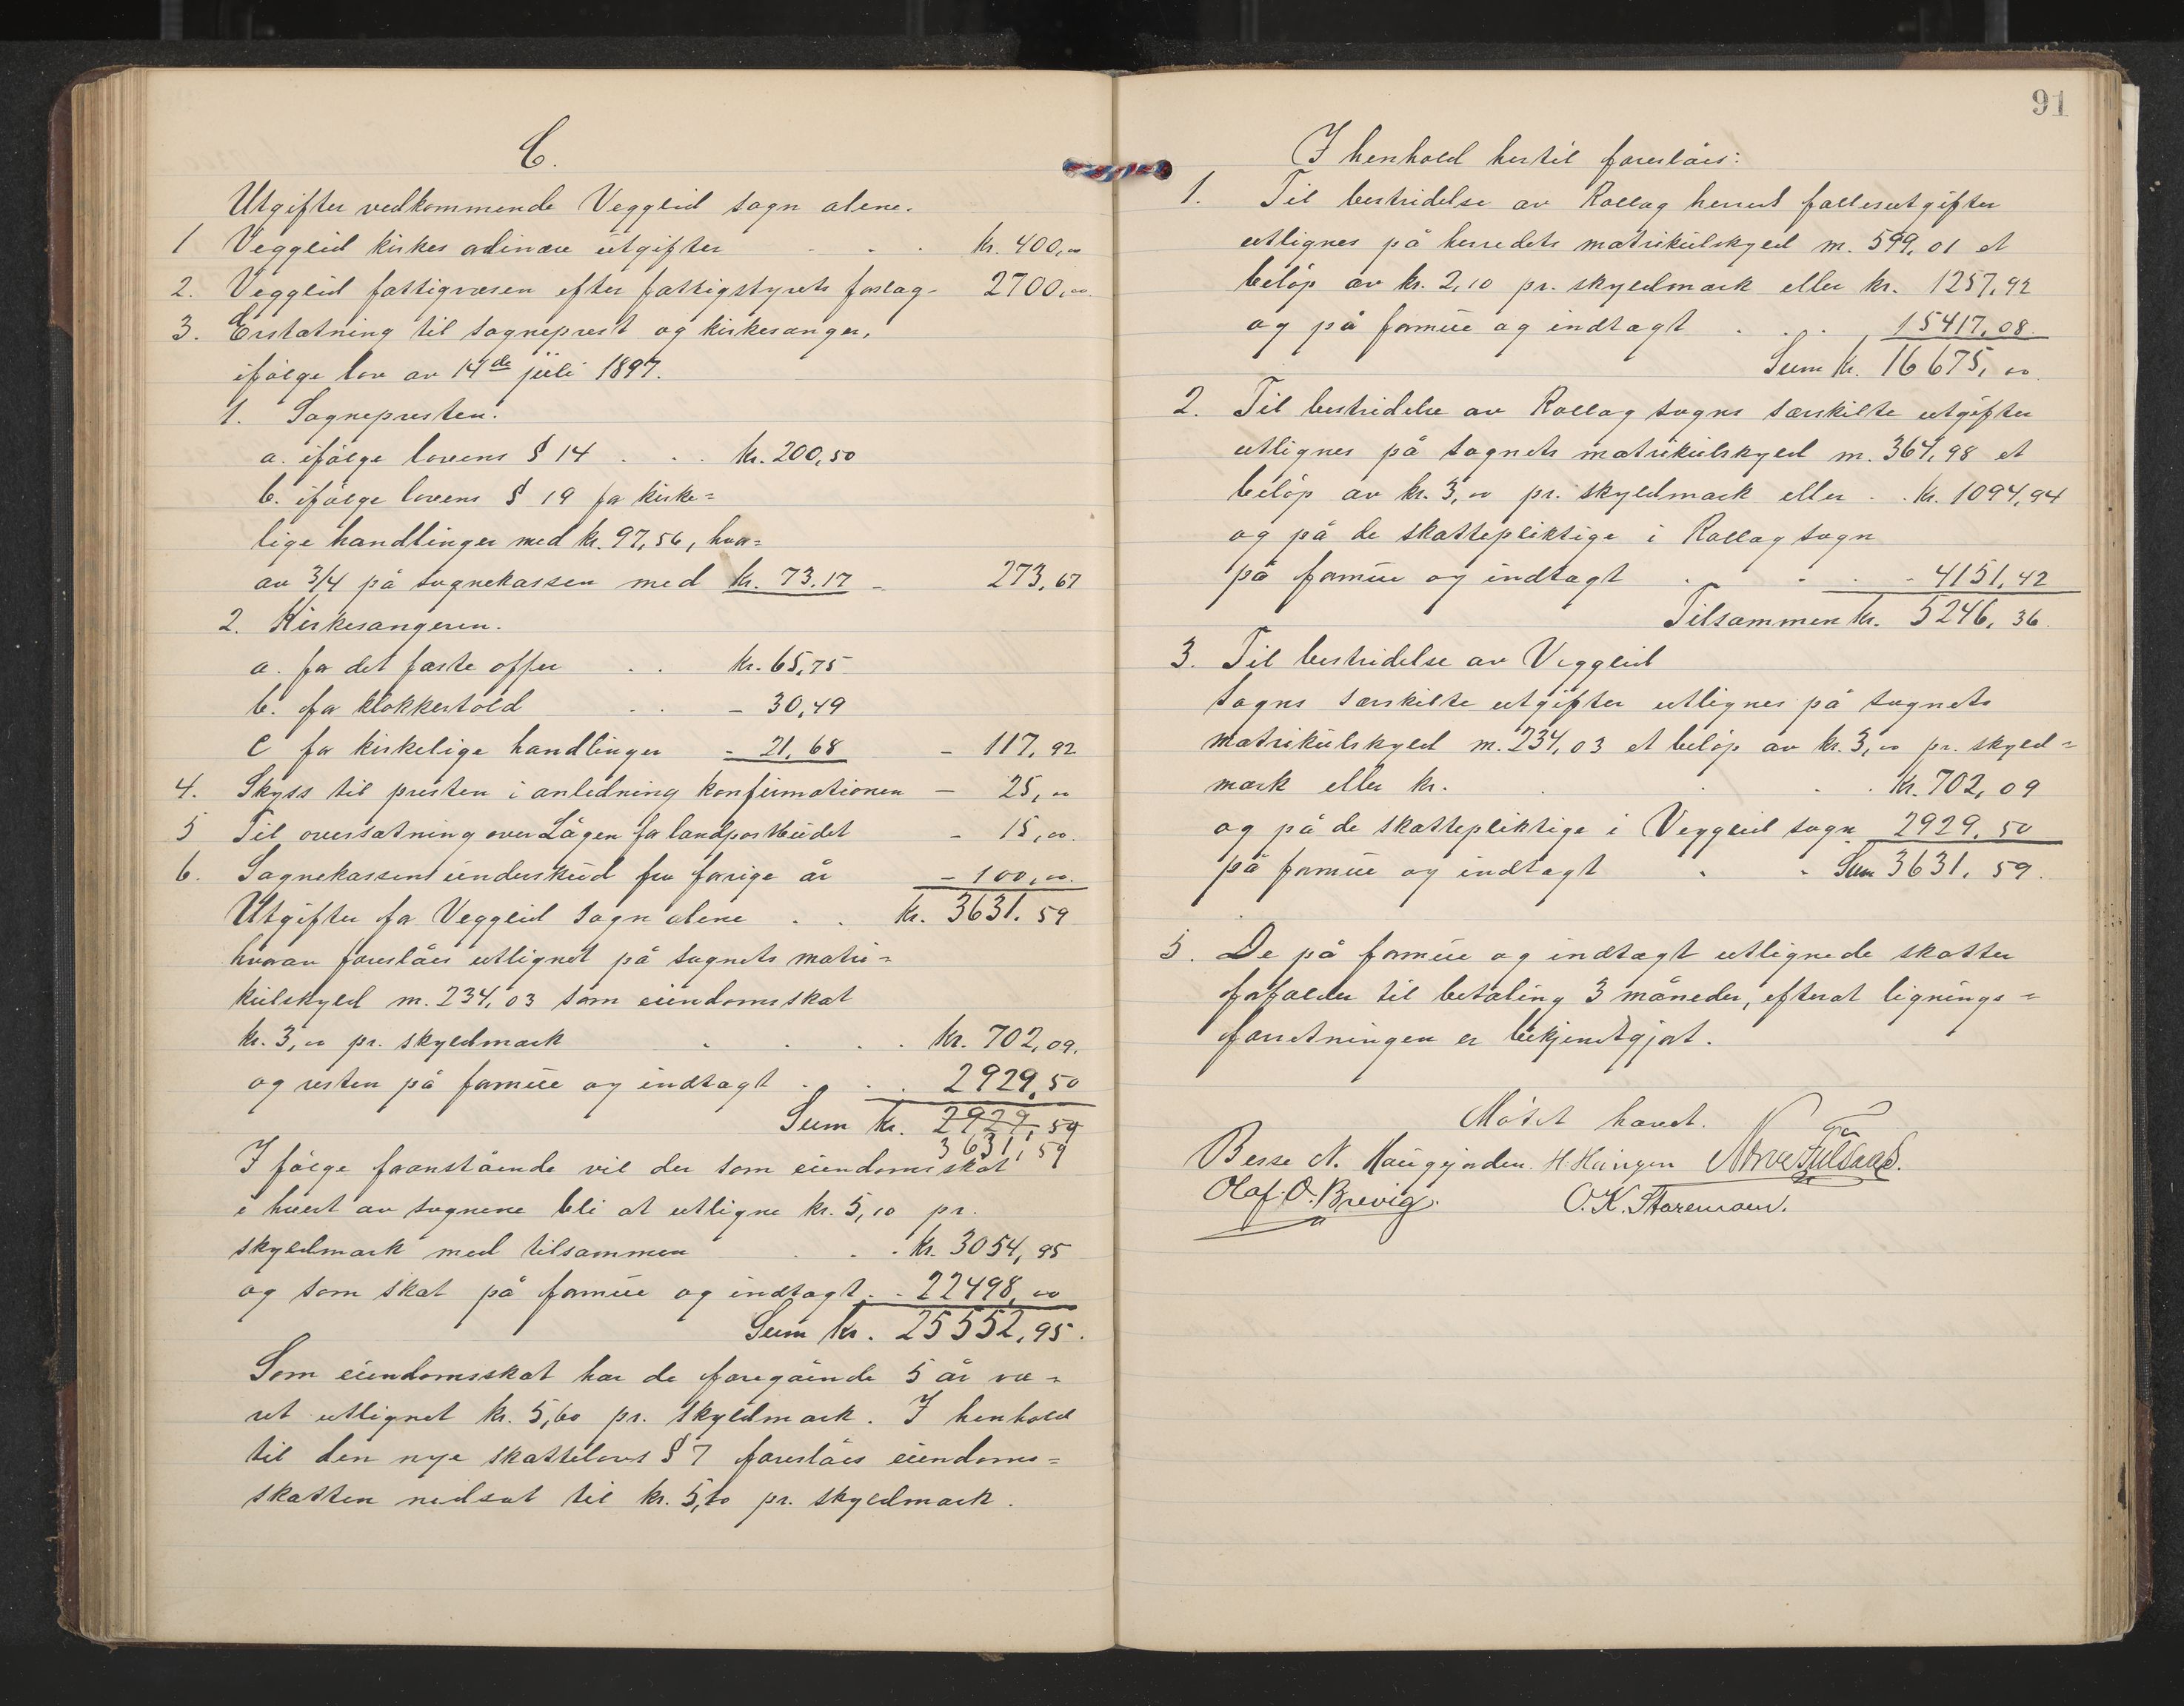 C.
Utgifter vedkommende Vegglid sogn alene.
1 Vegglid kirkes ordinære utgifter . . . Kr. 400,00
2. Vegglid fattigvæsen efter fattigstyrets forslag - 2700,00.
3. Erstatning til sogneprest og kirkesanger,
ifølge lov av 14de juli 1897.
1. Sognepresten:
a. ifølge lovens § 14 . . . Kr. 200,50
b. ifølge lovens § 19 for kirke=
lige handlinger med kr. 97,56, hvor=
av 3/4 på sognekassen med Kr. 73.17 - 273,67
2. Kirkesangeren.
a. for det faste offer . . Kr. 65,75
b. for klokkertold . . - 30,49
c for kirkelige handlinger - 21,68 - 117,92
4. Skyss til presten i anledning konfirmationen - 25,00
5 Til oversætning over Lågen for landpostbudet - 15,00.
6. Sognekassens underskud fra forige år - 100,00.
Utgifter for Vegglid sogn alene . . Kr. 3631.59
hvorav foreslåes utlignet på sognets matri=
kulskyld m. 234,03 som eiendomsskat
kr. 3,00 pr. skyldmark . . . . Kr. 702,09.
og resten på formue og indtægt . . . 2929,50
Sum Kr. 2929,59
3631,59
I følge foranstående vil der som eiendomsskat
i hvert av sognene bli at utligne kr. 5,10 pr.
skyldmark med tilsammen . . . Kr. 3054,95
og som skat på formue og indtægt . . 22498,00
Sum Kr. 25552,95.
Som eiendomsskat har de foregående 5 år væ=
ret utlignet kr. 5,60 pr. skyldmark. I henhold
til den nye skattelovs § 7 foreslåes eiendoms=
skatten nedsat til kr. 5,10 pr. skyldmark.
91
I henhold hertil foreslåes:
1. Til bestridelse av Rollag herred fællesutgifter
utlignes på herredets matrikulskyld m. 599,01 et
beløp av kr. 2,10 pr. skyldmark eller kr. 1257,92
og på formue og indtægt . . . 15417,08.
Sum Kr. 16675,00
2. Til bestridelse av Rollag sogns særskilte utgifter
utlignes på sognets matrikulskyld m. 364,98 et
beløp av kr. 3,00 pr. skyldmark eller . . Kr. 1094,94
og på de skattepliktige i Rollag sogn
på formue og indtægt . . . - 4151,42
Tilsammen Kr. 5246,36.
3. Til bestridelse av Vegglid
sogns særskilte utgifter utlignes på sognets
matrikulskyld m. 234,03 et beløp av kr. 3,00 pr. skyld=
mark eller kr. . . . . Kr. 702,09
og på de skattepliktige i Vegglid sogn 2929.50
på formue og indtægt . . Sum 3631,59.
5. De på formue og indtægt utlignede skatter
forfalder til betaling 3 måneder, efterat lignings=
forretningen er bekjendtgjort.
Møtet hævet.
Besse N. Haugjorden. H. Huingen
Olaf. O. Brevig. O. K.